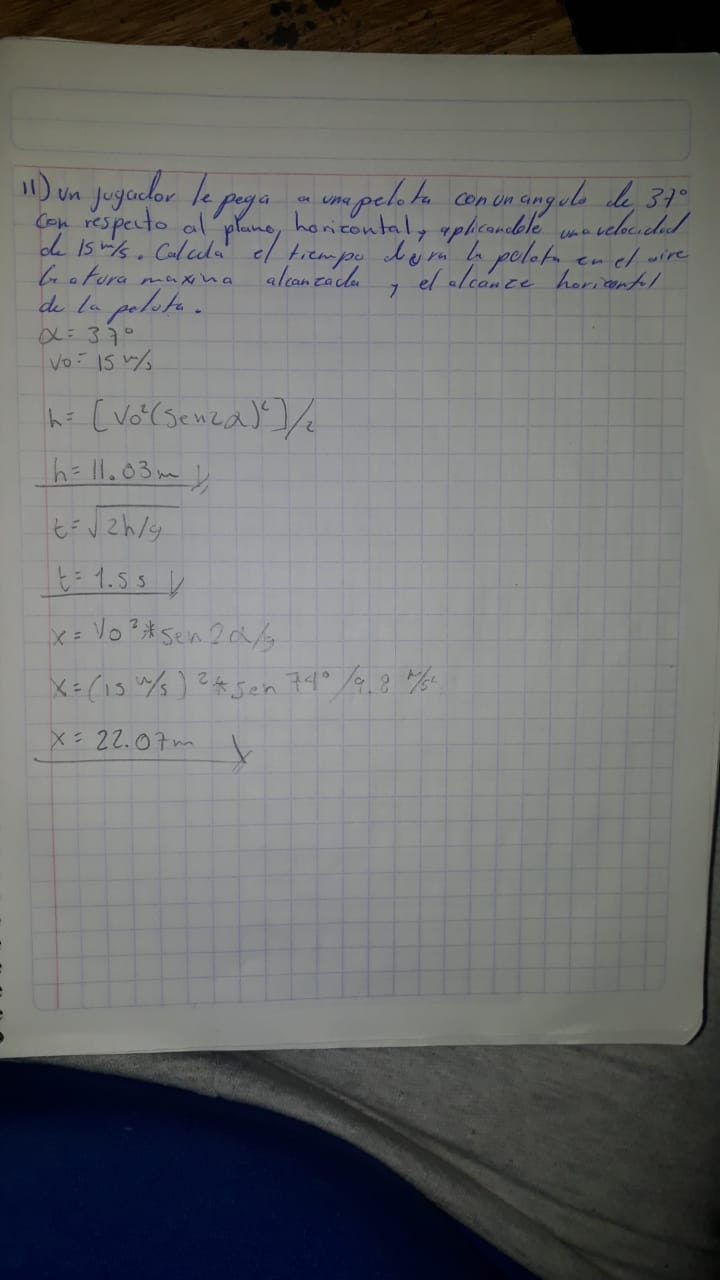 11) un jugador le pega a una pelota con un angulo de 37°
con respecto al plano, horizontal, aplicandole una velocidad
de 15 m/s. Calcula el tiempo dura la pelota en el aire
la atura maxina alcanzada y el alcance horizontal
de la pelota.
α= 37°
Vo= 15 m/s
h= [Vo²(sen2α)²]/2
h= 11.03m
t= √2h/g
t= 1.5 s
x= Vo²* sen 2α/g
x= (15 m/s)²* sen 74° /9.8 m/s²
x= 22.07m